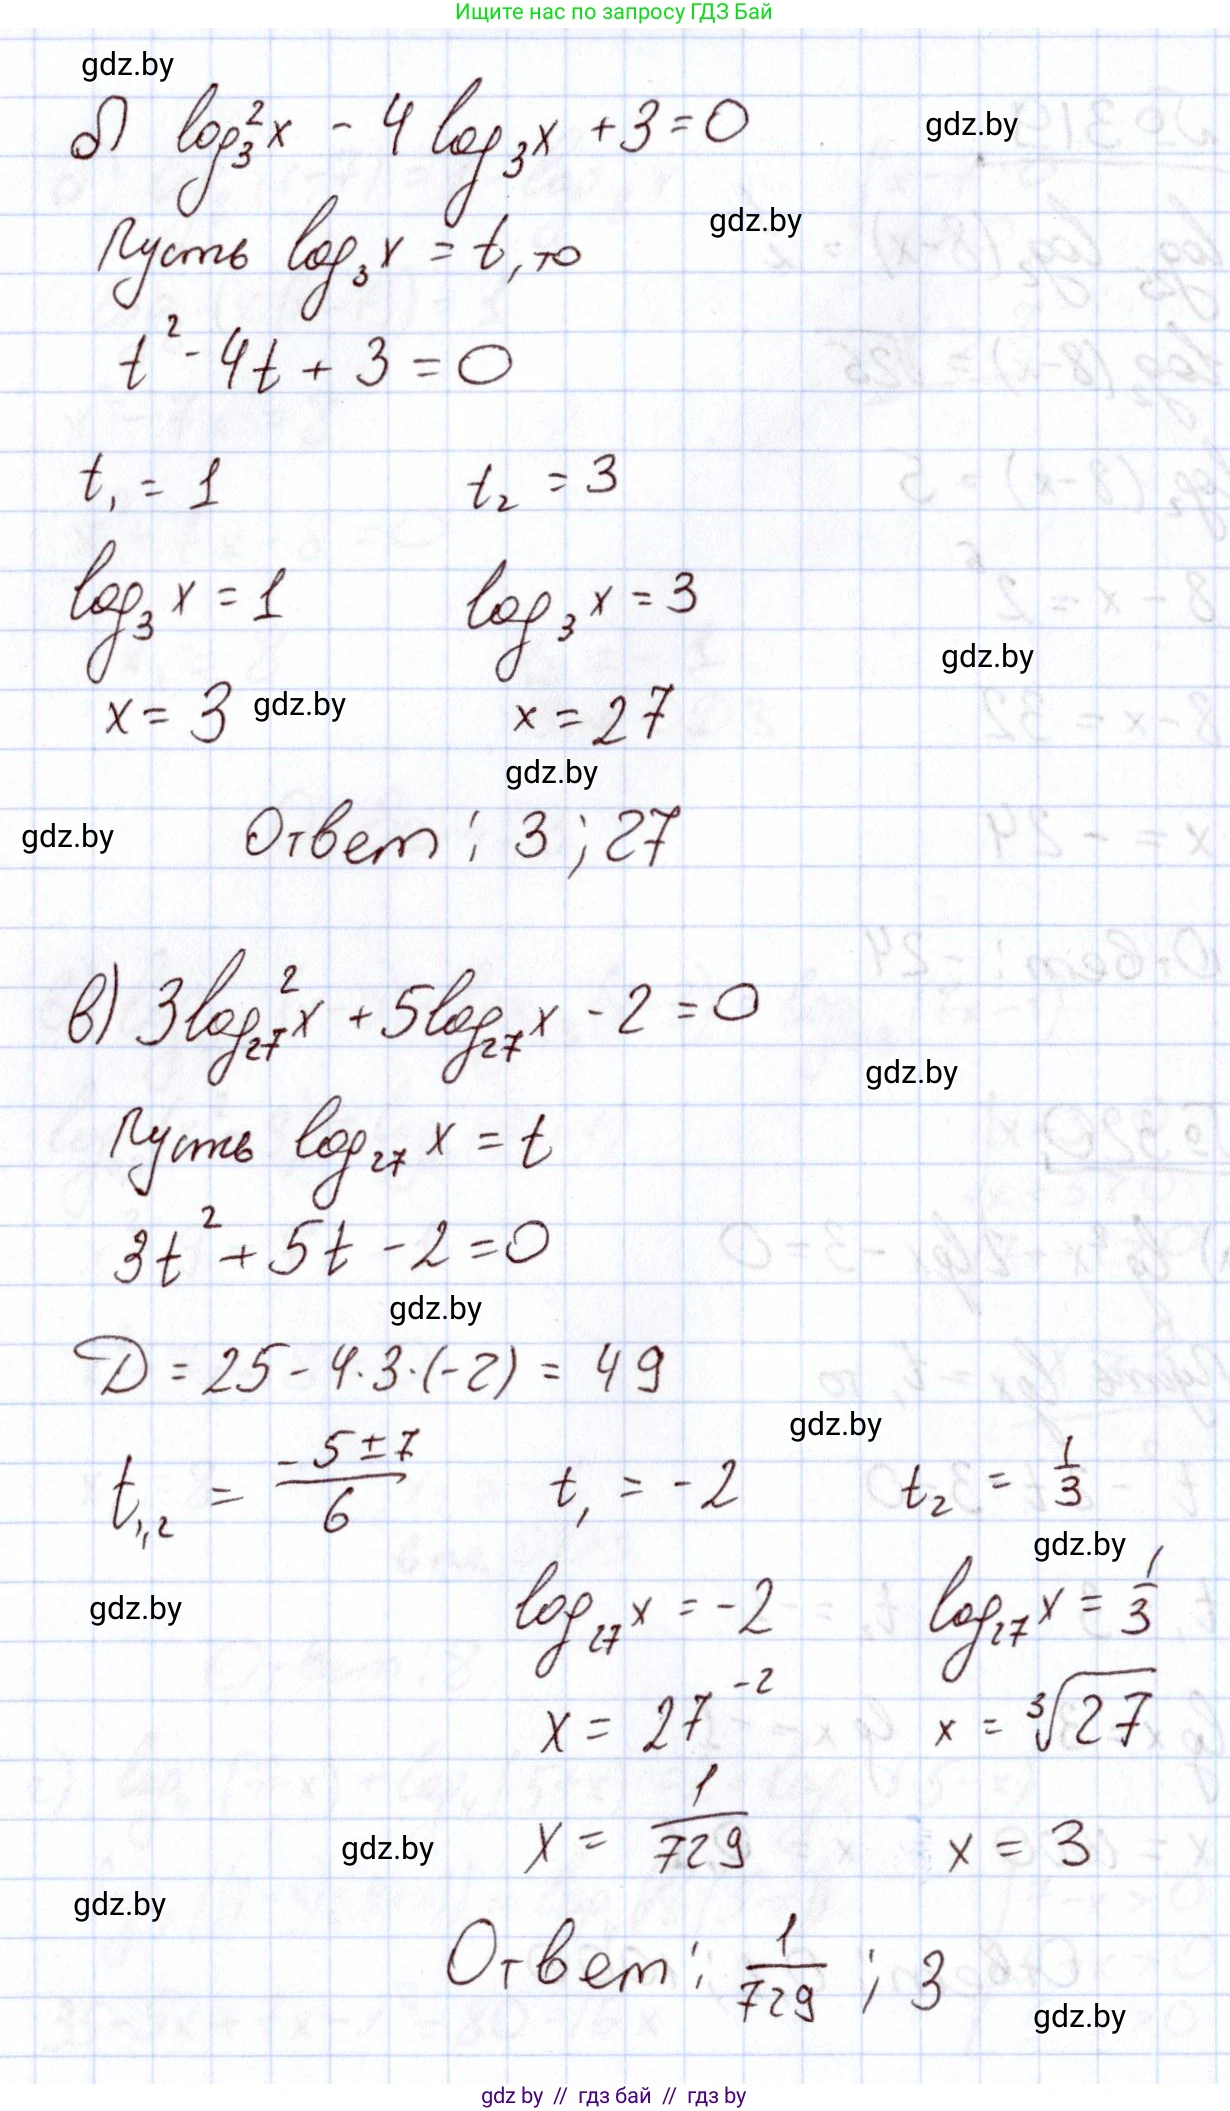 Ищите нас по запросу ГДЗ Бай
gdz.by
б) log₃²x - 4 log₃x + 3 = 0
gdz.by
gdz.by
Пусть log₃x = t, то
t² - 4t + 3 = 0
t₁ = 1 t₂ = 3
log₃x = 1 log₃x = 3
gdz.by
x = 3 gdz.by x = 27
gdz.by
gdz.by Ответ: 3; 27
в) 3log₂₇²x + 5log₂₇x - 2 = 0
gdz.by
Пусть log₂₇x = t
3t² + 5t - 2 = 0
gdz.by
D = 25 - 4·3·(-2) = 49
gdz.by
t₁,₂ = (-5±7)/6 t₁ = -2 t₂ = 1/3
gdz.by
gdz.by log₂₇x = -2 log₂₇x = 1/3
x = 27⁻² x = ³√27
gdz.by x = 1/729 x = 3
gdz.by
Ответ: 1/729; 3
gdz.by
gdz by // гдз бай // гдз by